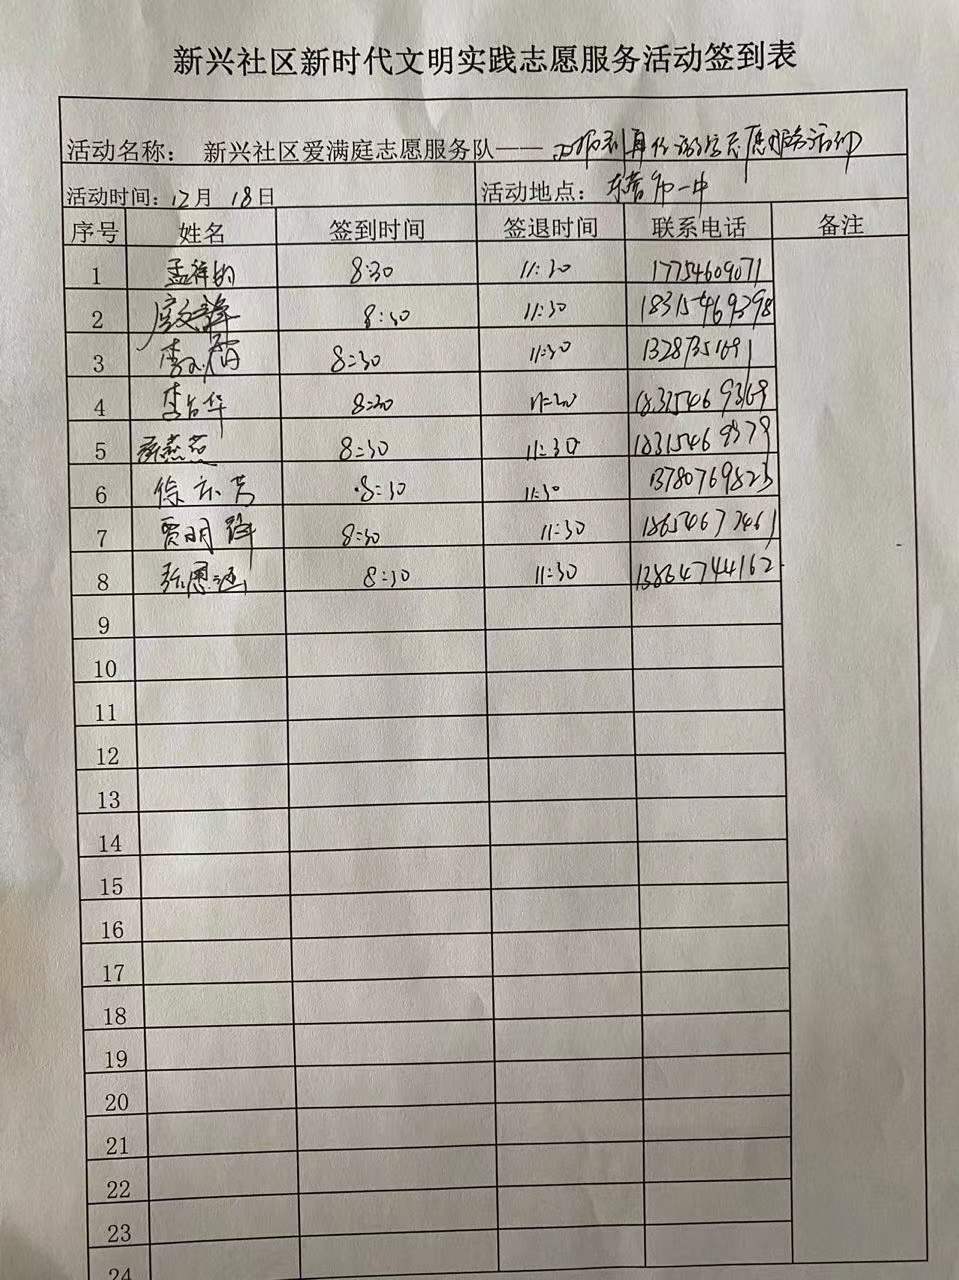 新兴社区新时代文明实践志愿服务活动签到表
活动名称： 新兴社区爱满庭志愿服务队—— 志愿服务活动
活动时间：12月 18日 活动地点： 东营市一中
序号 姓名 签到时间 签退时间 联系电话 备注
1 孟祥 8:30 11:30 17754609071
2 8:30 11:30 18315469398
3 李 8:30 11:30
4 李 华 8:30 11:30 18315469369
5 燕 8:30 11:30 18315469379
6 徐 芳 8:30 11:30 13780769823
7 贾明 8:30 11:30 18654673461
8 张恩涵 8:30 11:30 13864744162
9
10
11
12
13
14
15
16
17
18
19
20
21
22
23
24